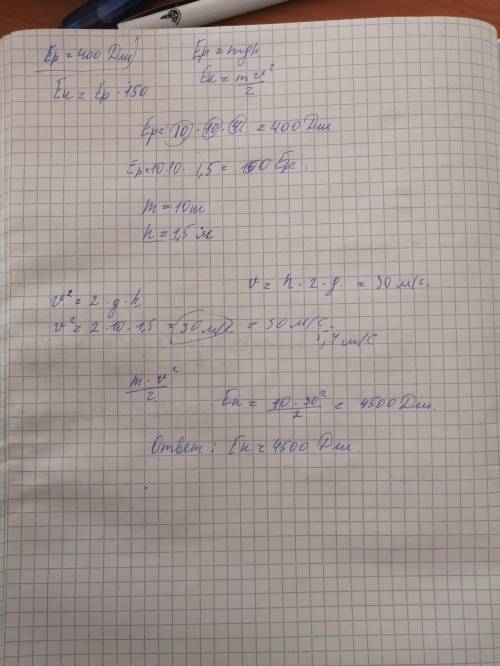 Ep = 400 Дж Ep = mgh
Eк = Ep · 150 Eк = mv²/2
Ep = 10 · 10 · 4 = 400 Дж
Ep = 10·10 · 1,5 = 150 Ep.
m = 10
h = 1,5 м
v = h · 2 · g = 30 м/с.
v² = 2 · g · h
v² = 2 · 10 · 1,5 = 30 м/с = 30 м/с.
5,4 м/с
m · v²/2
Eк = 10 · 30²/2 = 4500 Дж.
Ответ: Eк = 4500 Дж.